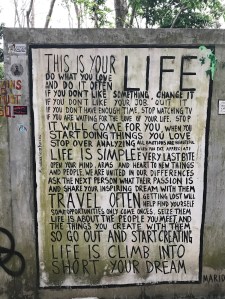 THIS IS YOUR
LIFE
DO WHAT YOU LOVE
AND DO IT OFTEN
IF YOU DON'T LIKE SOMETHING, CHANGE IT
IF YOU DON'T LIKE YOUR JOB QUIT IT
IF YOU DON'T HAVE ENOUGH TIME, STOP WATCHING TV
IF YOU ARE WAITING FOR THE LOVE OF YOUR LIFE, STOP
IT WILL COME FOR YOU, WHEN YOU
START DOING THINGS YOU LOVE
STOP OVER ANALYZING ALL EMOTIONS ARE BEAUTIFUL
WHEN YOU EAT, APPRECIATE
LIFE IS SIMPLE EVERY LAST BITE
OPEN YOUR MIND, ARMS AND HEART TO NEW THINGS
AND PEOPLE, WE ARE UNITED IN OUR DIFFERENCES
ASK THE NEXT PERSON WHAT THEIR PASSION IS
AND SHARE YOUR INSPIRING DREAM WITH THEM
TRAVEL OFTEN GETTING LOST WILL
HELP FIND YOURSELF
SOME OPPORTUNITIES ONLY COME ONCE, SEIZE THEM
LIFE IS ABOUT THE PEOPLE YOU MEET AND
THE THINGS YOU CREATE WITH THEM
SO GO OUT AND START CREATING
LIFE IS CLIMB INTO
SHORT YOUR DREAM
MARIO